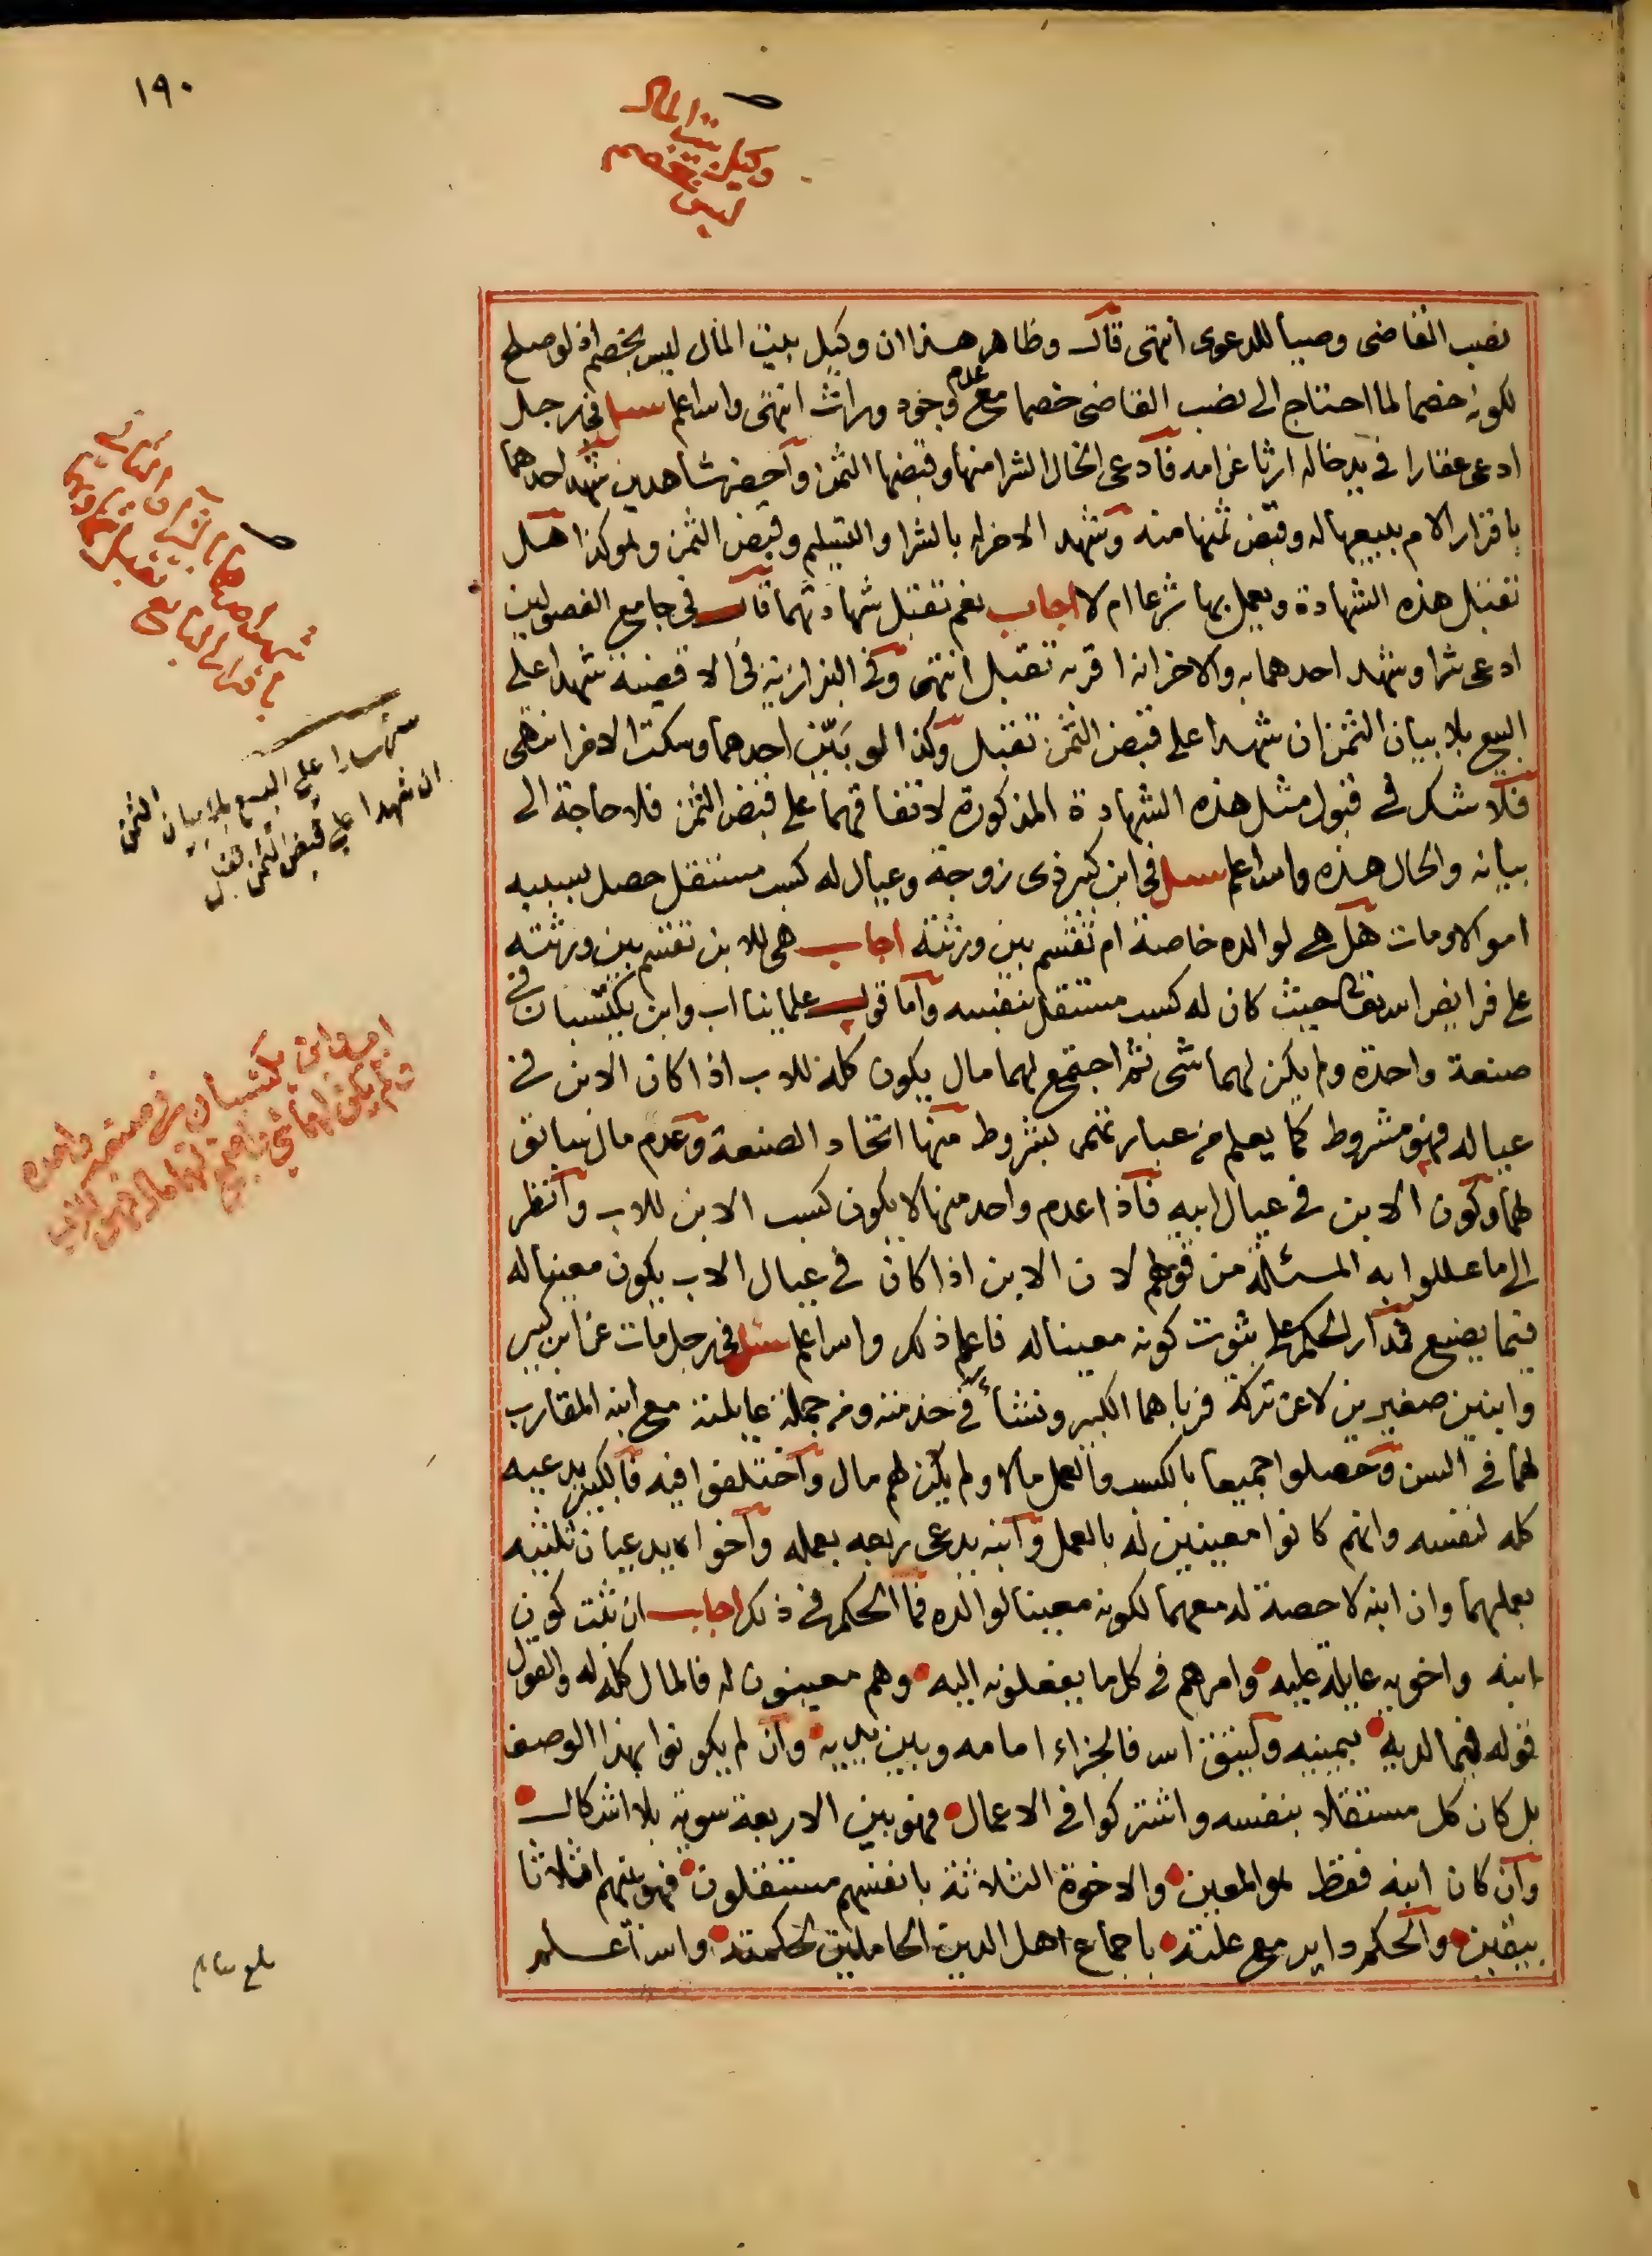 ١٩٠
وكيل بيت المال
ليس بخصم
نصب القاضى وصيا للدعوى انتهى قال وظاهر هذا ان وكيل بيت المال ليس بخصم اذ لو صلح
لكونه خصما لما احتاج الى نصب القاضى خصما مع عدم وجود وارث انتهى والله اعلم سئل فى رجل
ادعى عقارا فى يد خاله ارثا عن امه فادعى الخال الشرا منها وقبضها الثمن واحضر شاهدين شهد احدهما
باقرار الام ببيعها له وقبض ثمنها منه وشهد الاخر له بالشرا والتسليم وقبض الثمن ولم كذا هل
تقبل هذه الشهادة ويعمل بها شرعا ام لا اجاب نعم تقبل شهادتهما قال فى جامع الفصولين
ادعى شرا وشهد احدهما به والاخر انه اقر به تقبل انتهى وفى البزازية فى الاقضية شهدا على
البيع بلا بيان الثمن ان شهدا على قبض الثمن تقبل وكذا لو بيّن احدهما وسكت الاخر انتهى
فلا شك فى قبول مثل هذه الشهادة المذكورة لاتفاقهما على قبض الثمن فلا حاجة الى
بيانه والحال هذه والله اعلم سئل فى ابن كبير ذى زوجة وعيال له كسب مستقل حصل بسببه
اموالا ومات هل هى لوالده خاصة ام تقسم بين ورثته اجاب هى للابن تقسم بين ورثته
على فرايض الله تعالى حيث كان له كسب مستقل بنفسه واما قول علمائنا اب وابن يكتسبان فى
صنعة واحدة ولم يكن لهما شى ثم اجتمع لهما مال يكون كله للاب اذا كان الابن فى
عياله فهو مشروط كما يعلم من عباراتهم بشروط منها اتحاد الصنعة وعدم مال سابق
لهما وكون الابن فى عيال ابيه فاذا عدم واحد منها لا يكون كسب الابن للاب وانظر
الى ما عللوا به المسئلة من قولهم لان الابن اذا كان فى عيال الاب يكون معينا له
فيما يصنع فمدار الحكم على ثبوت كونه معينا له فاعلم ذلك والله اعلم سئل فى رجل مات عن ابن كبير
وابنين صغيرين لا عن تركة فرباهما الكبير ونشأ فى خدمته ومن جملة عايلته مع ابنه المقارب
لهما فى السن وحصلوا جميعا بالكسب والعمل مالا ولم يكن لهم مال واختلفوا فيه فالكبير يدعيه
كله لنفسه وانهم كانوا معينين له بالعمل وابنه يدعى ربعه بعمله واخواه يدعيان ثلثيه
بعملهما وان ابنه لا حصة له معهما لكونه معينا لوالده فما الحكم فى ذلك اجاب ان ثبت كون
ابنه واخويه عايلة عليه وامرهم فى كل ما يفعلونه اليه وهم معينون له فالمال كله له والقول
قوله فيما لديه بيمينه وليتق الله فالجزاء امامه وبين يديه وان لم يكونوا بهذا الوصف
بل كان كل مستقلا بنفسه واشتركوا فى الاعمال فهو بين الاربعة سوية بلا اشكال
وان كان ابنه فقط هو المعين والاخوة الثلاثة بانفسهم مستقلون فهو بينهم اثلاثا
بيقين والحكم داير مع علته باجماع اهل الدين الحاملين لحكمته والله اعلم
شهد احدهما بالشرا والثانى
باقرار البايع تقبل
شهدا على البيع بلا بيان الثمن
ان شهدا على قبض الثمن تقبل
اب وابن يكتسبان فى صنعة واحدة
ولم يكن لهما شى ثم اجتمع لهما مال فهو للاب